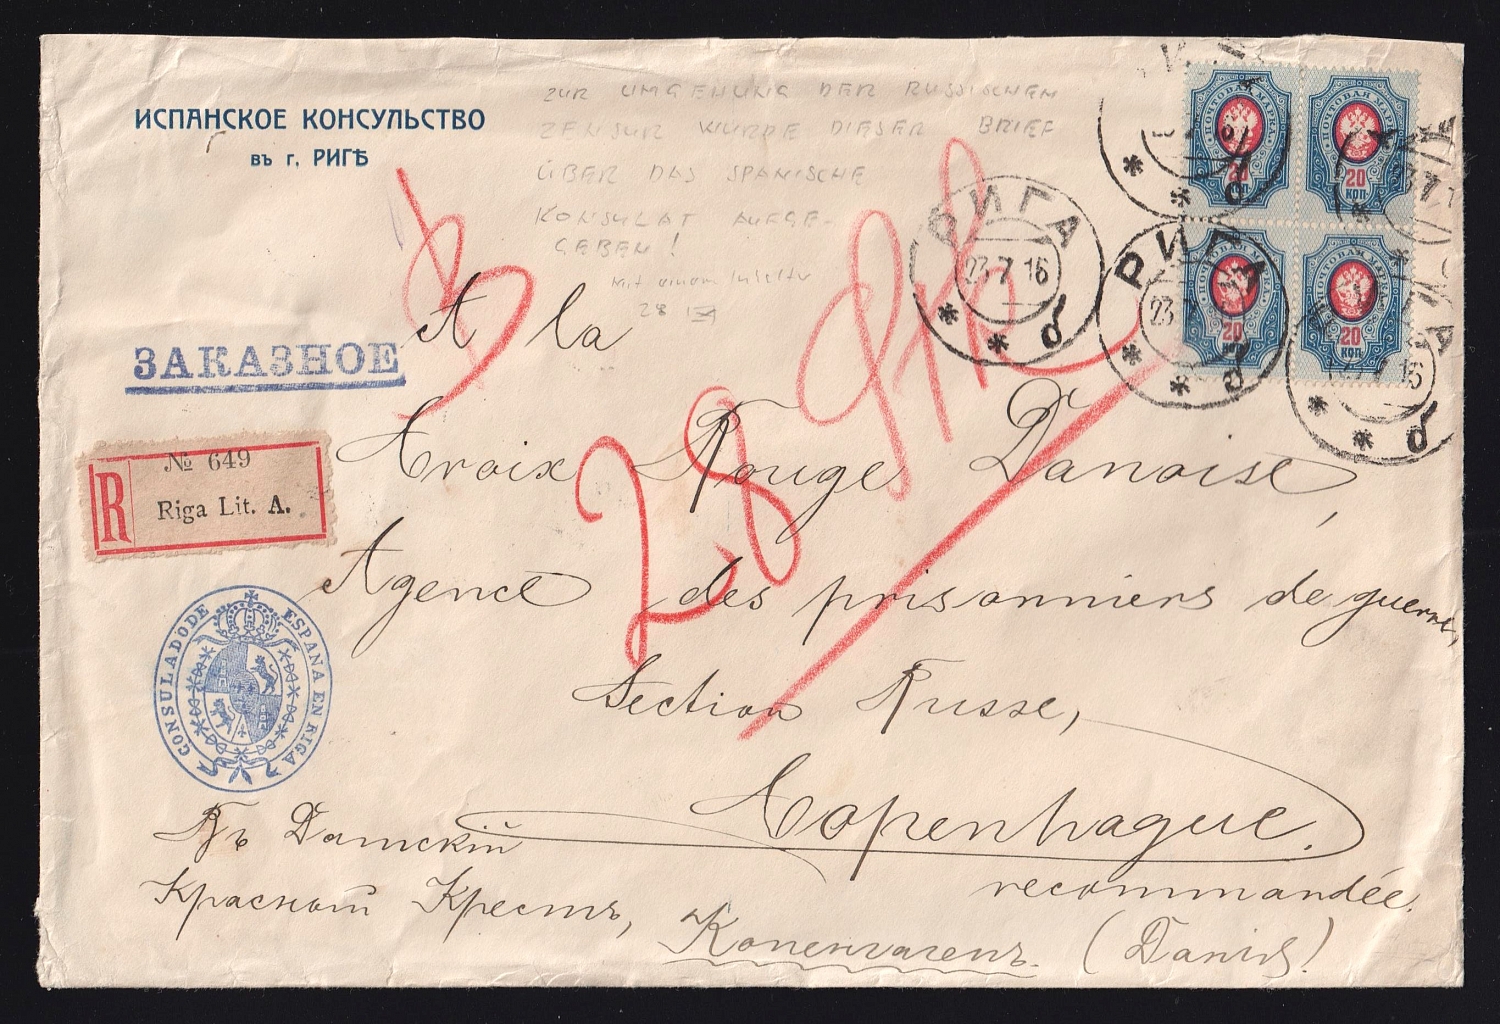 ИСПАНСКОЕ КОНСУЛЬСТВО
въ г. РИГѢ
ZUR UMGEHUNG DER RUSSISCHEN
ZENSUR WURDE DIESER BRIEF
ÜBER DAS SPANISCHE
KONSULAT AUFGE-
GEBEN!
Mit einem
28
ПОЧТОВАЯ МАРКА
20
КОП
ПОЧТОВАЯ МАРКА
20
КОП
ПОЧТОВАЯ МАРКА
20
КОП
ПОЧТОВАЯ МАРКА
20
КОП
РИГА
23 7 16
б
РИГА
23
б
ЗАКАЗНОЕ
R
№ 649
Riga Lit. A.
28
A la
Croix Rouge Danoise
Agence des prisonniers de guerre,
Section Russe,
Copenhague.
recommandée.
CONSULADO DE ESPAÑA EN RIGA
Въ Датскій
Красный Крестъ, Копенгагенъ. (Danie)